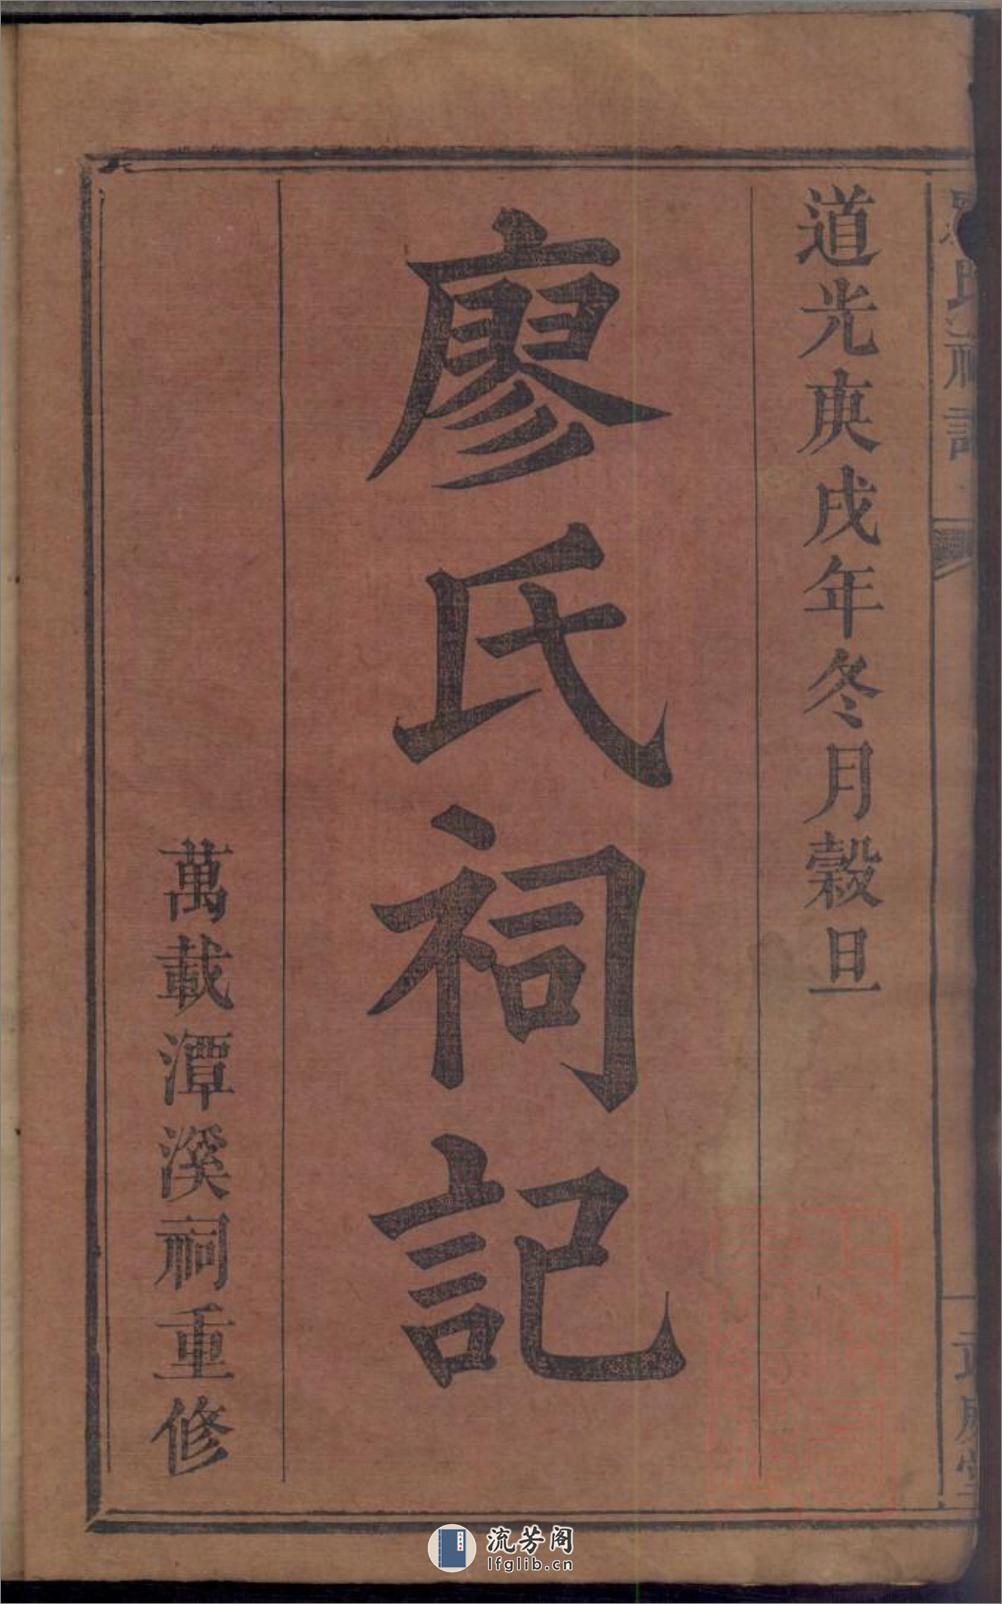 道光庚戌年冬月穀旦
廖氏祠記
萬載潭溪祠重修
流芳阁
lfglib.cn